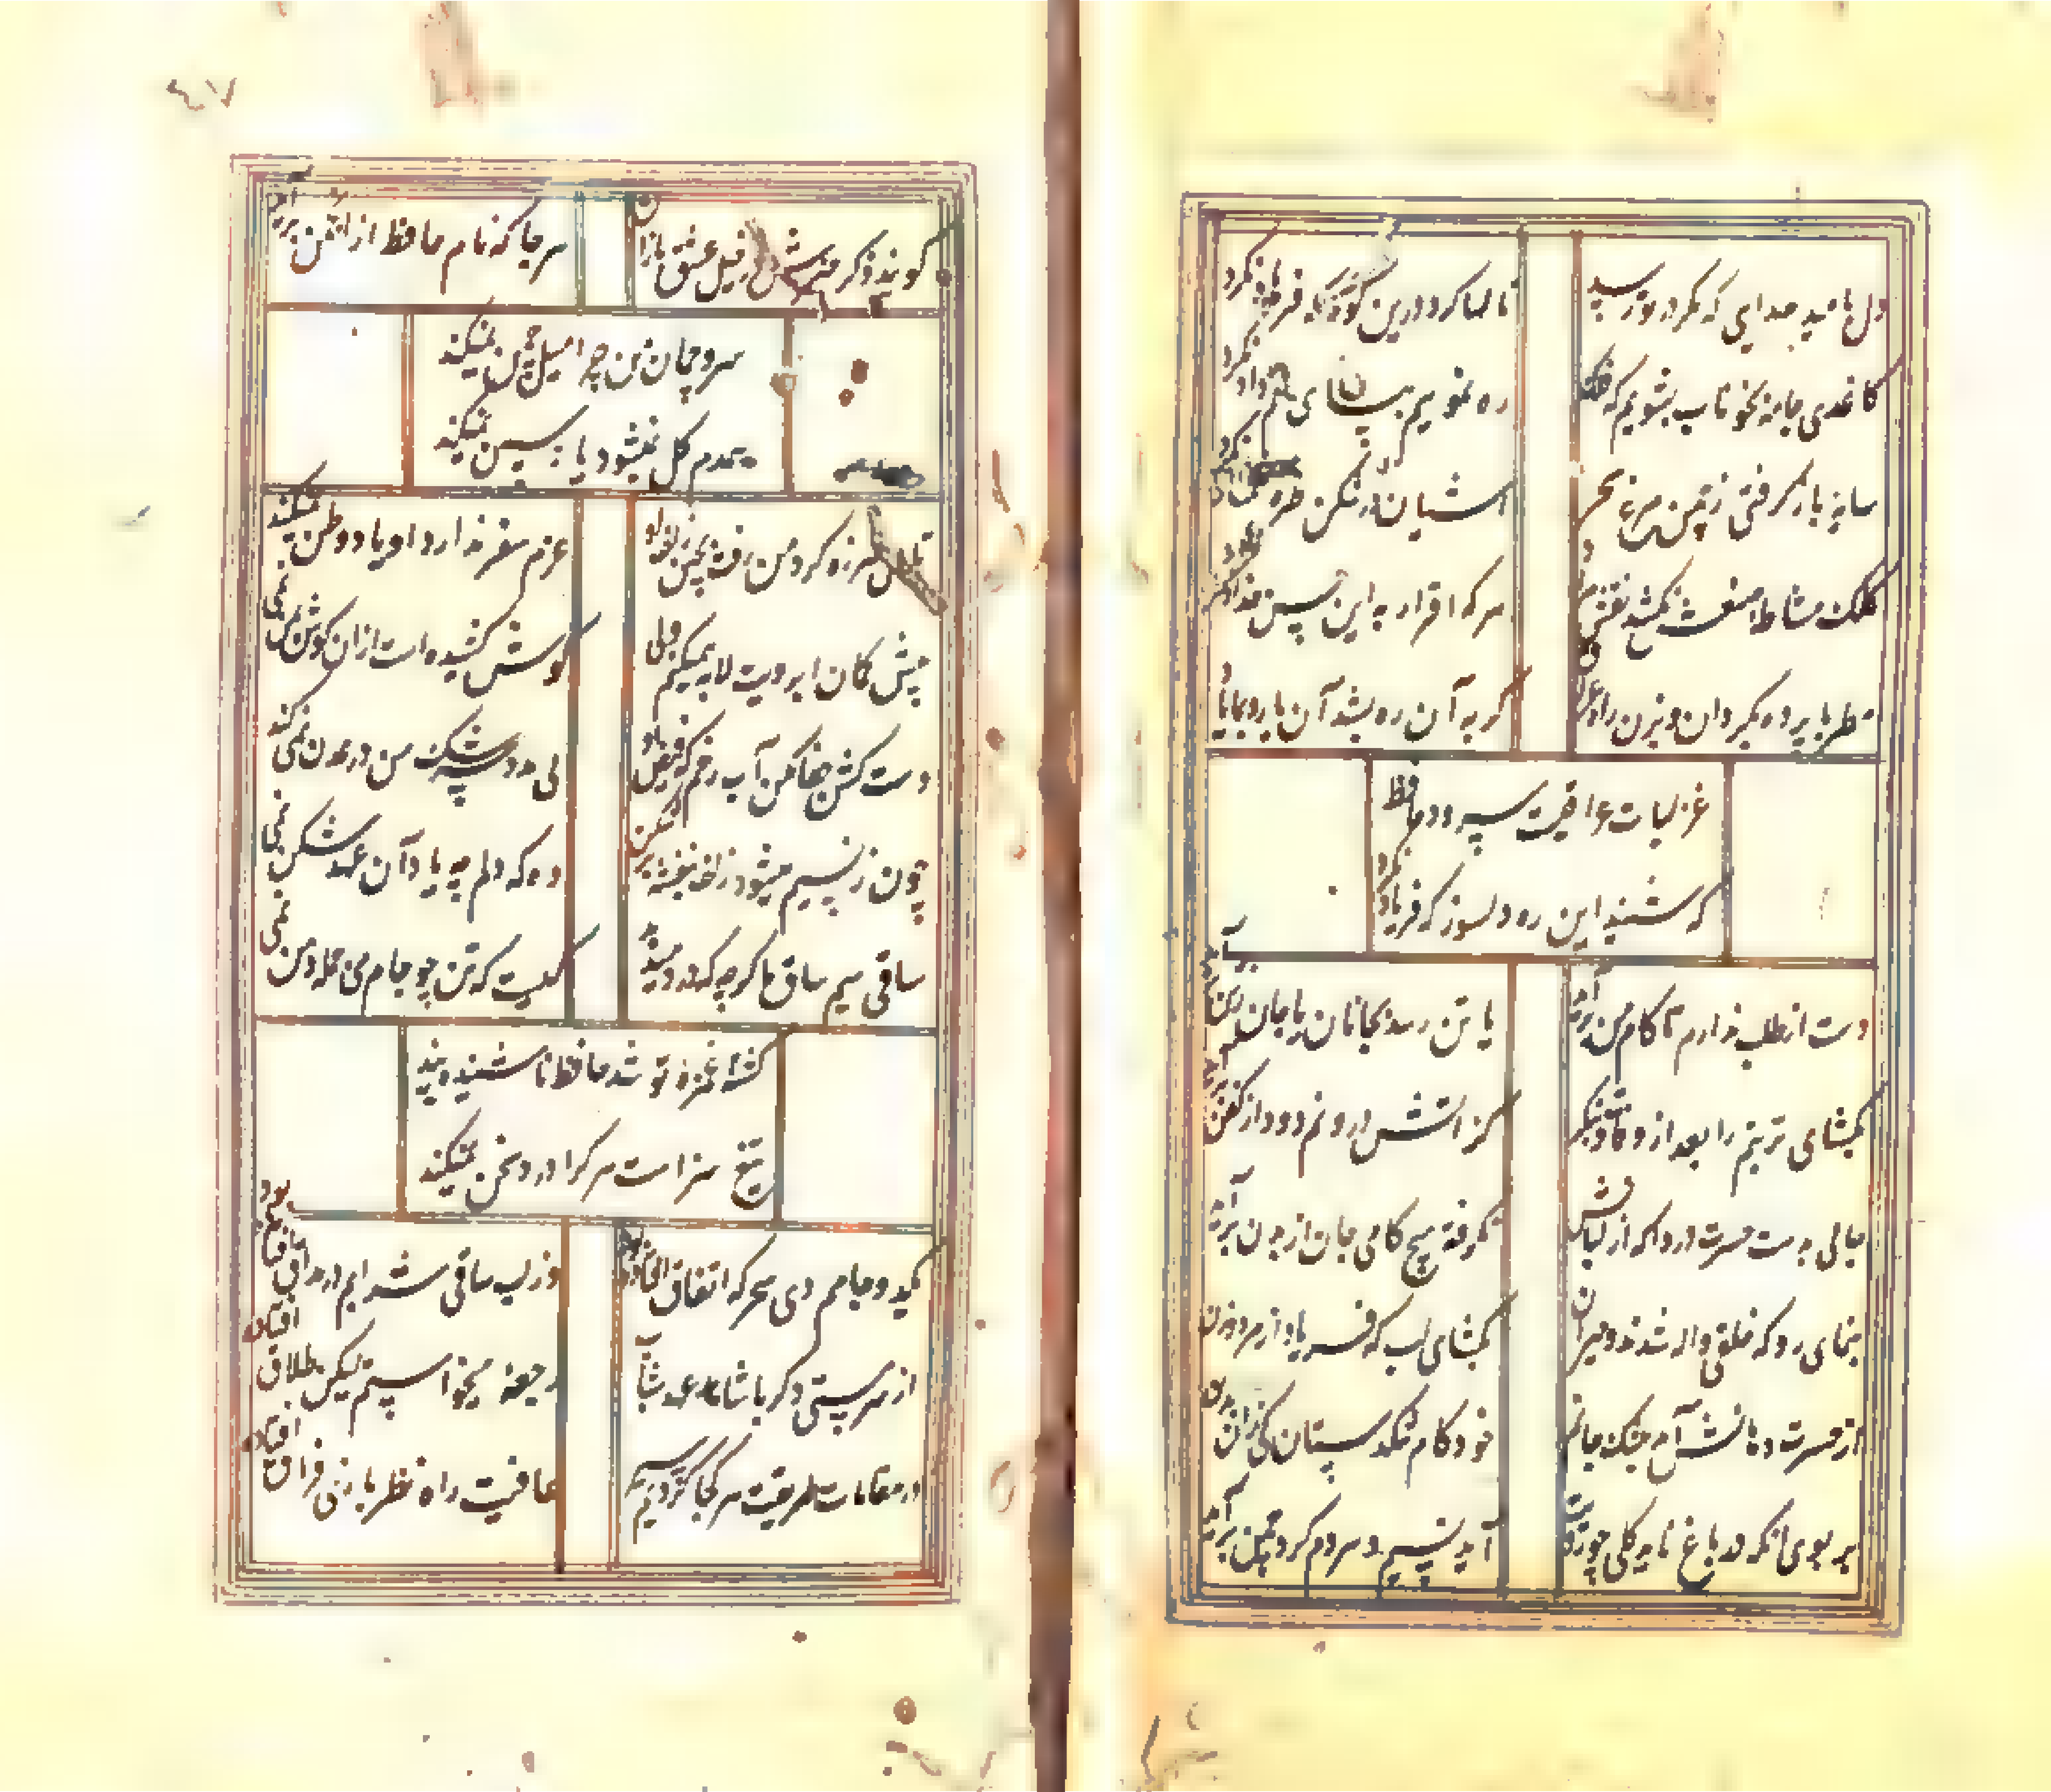 دل بامید صدایی که مکر در تو رسید
نالها کرد درین کوه که فرهاد نکرد
کاغذی جامه بخوناب بشویم که فلک
ره نمونیم بپای علم داد نکرد
سایه تا باز گرفتی ز چمن مرغ سحر
آشیان در شکن طره شمشاد نکرد
کلک مشاطه صنعش نکشد نقش مراد
هر که اقرار به این حسن خداداد نکرد
مطربا پرده بگردان و بزن راه عراق
که به آن ره بشد آن یار و ز ما یاد نکرد
غزلیات عراقیست سرود حافظ
که شنید این ره دلسوز که فریاد نکرد
دست از طلب ندارم تا کام من برآید
یا تن رسد بجانان یا جان ز تن برآید
بکشای تربتم را بعد از وفات و بنگر
کز آتش درونم دود از کفن برآید
جان بر لبست حسرت در دل که از لبانش
نگرفته هیچ کامی جان از بدن برآید
بنمای رو که خلقی واله شوند و حیران
بکشای لب که فریاد از مرد و زن برآید
از حسرت دهانش آمد بتنک جانم
خود کام تنکدستان کی زان دهن برآید
بر بوی آنکه در باغ یابد گلی چو رویت
آید نسیم و هر دم کرد چمن برآید
گویند ذکر خیرش در خیل عشق بازان
هر جا که نام حافظ از انجمن برآید
سرو چمان من چرا میل چمن نمیکند
همدم گل نمیشود یاد سمن نمیکند
تا دل هرزه گرد من رفت بچین زلف او
عزم سفر ندارد او یاد وطن نمیکند
پیش کمان ابرویت لابه همیکنم ولی
گوش کشیده است از آن گوش بمن نمی‌کند
دست کش جفا مکن آب رخم که فیض ابر
بی مدد سرشک من در عدن نمی کند
چون ز نسیم میشود زلف بنفشه پر شکن
وه که دلم چه یاد آن عهد شکن نمی
ساقی سیم ساق ما گرچه که درد میدهد
کیست که تن چو جام می جمله دهن نمی
کشته غمزه تو شد حافظ ناشنیده پند
تیغ سزاست هر کرا درد سخن نمیکند
یکدو جامم دی سحرکه اتفاق افتاده بود
وز لب ساقی شرابم در مذاق افتاده بود
از سر مستی دکر با شاهد عهد شباب
رجعتی میخواستم لیکن طلاق افتاده
در مقامات طریقت هر کجا کردیم سیر
عافیت را نظر بازی فراق افتاده
۴۷